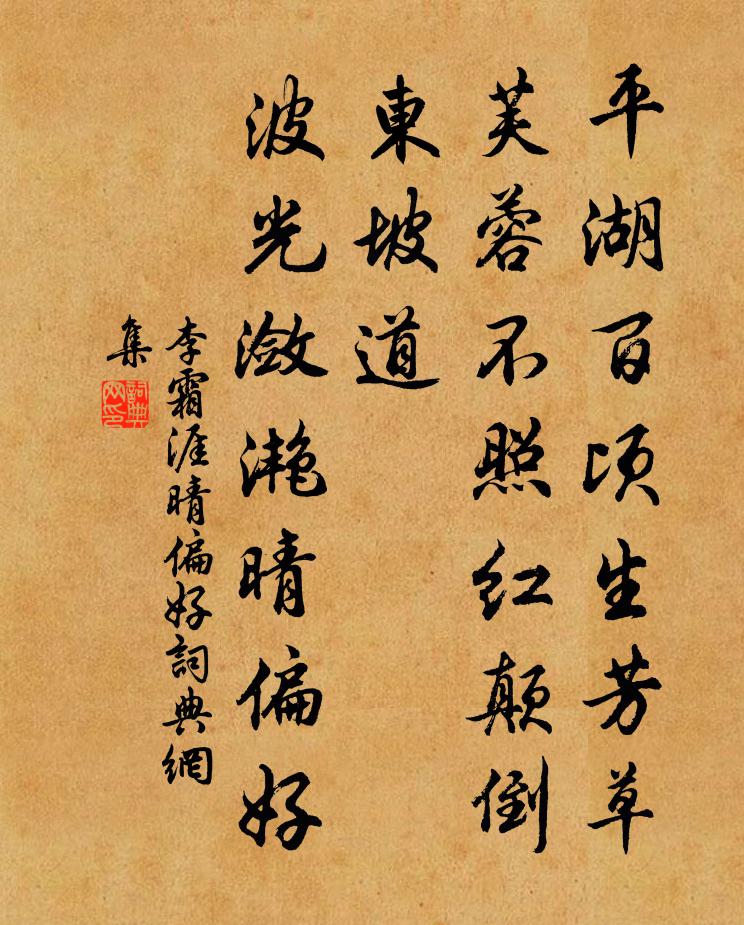 平湖百顷生芳草
芙蓉不照红颠倒
東坡道
波光潋滟晴偏好
李霜涯晴偏好詞典網
集
詞典网印